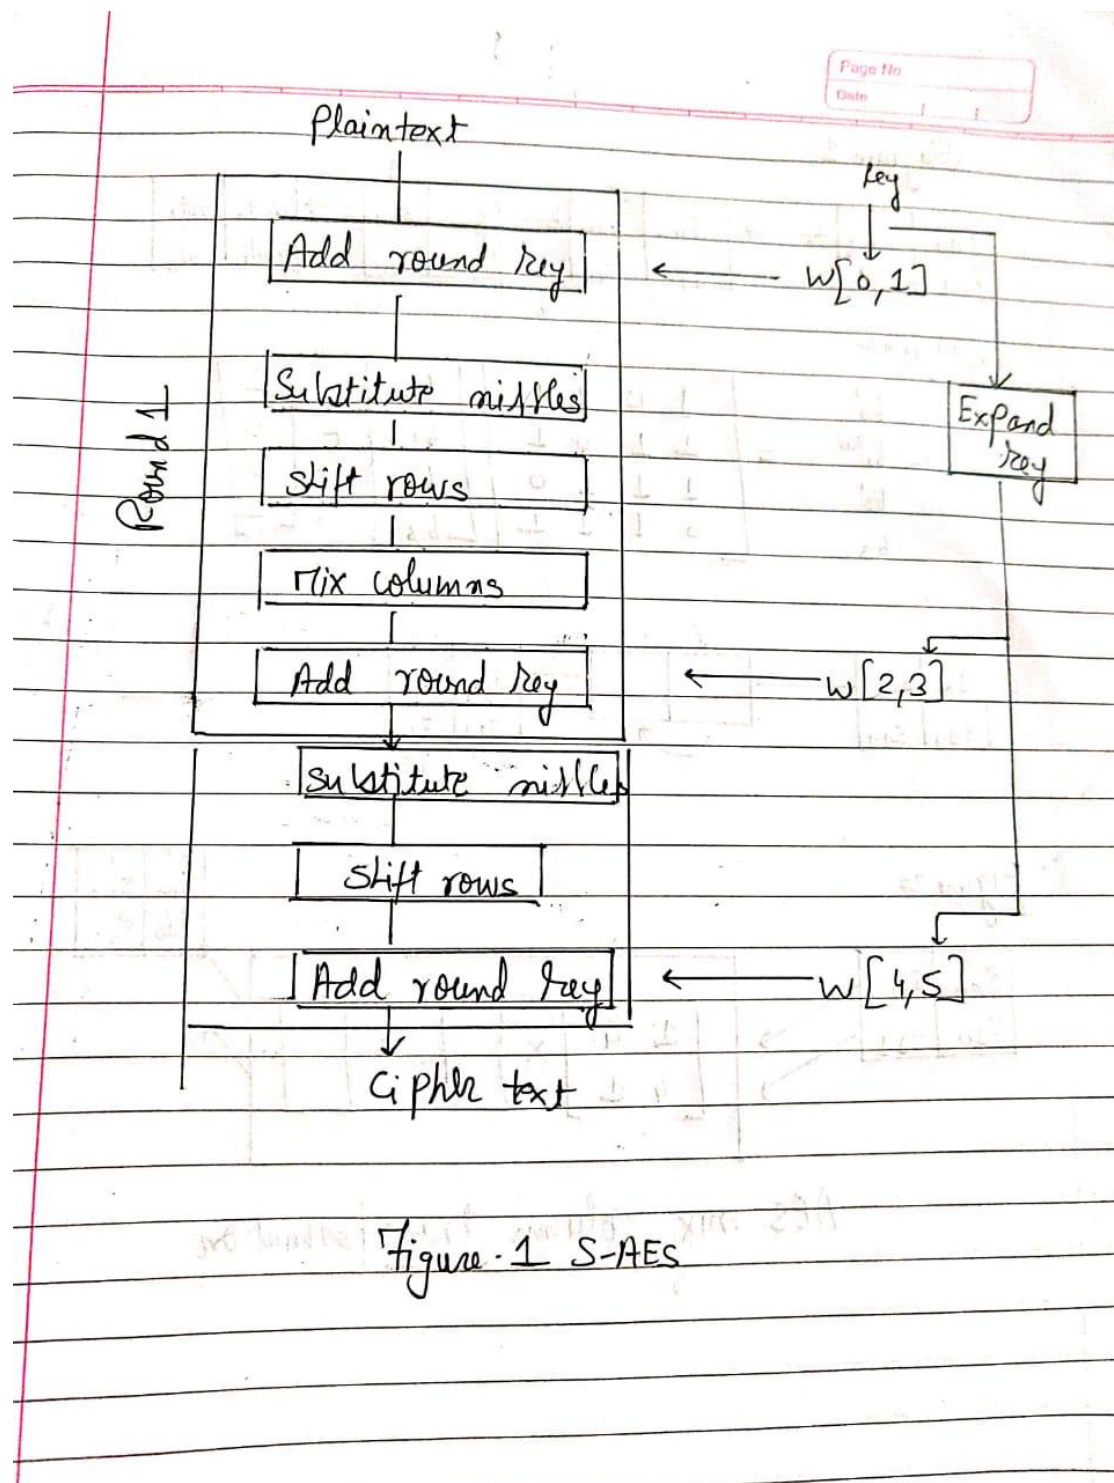 Page No.
Date
Plaintext
key
Add round key
W[0,1]
Substitute nibbles
Expand
key
Shift rows
Round 1
Mix columns
Add round key
W[2,3]
Substitute nibbles
Shift rows
Add round key
W[4,5]
Cipher text
Figure-1 S-AES